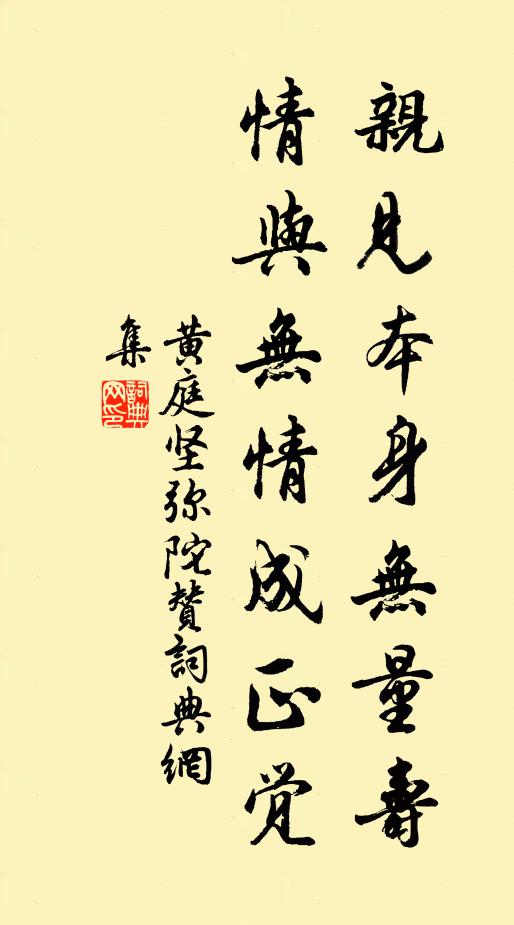 親見本身無量壽
情與無情成正觉
黄庭坚弥陀赞詞典網
集
詞典
网印